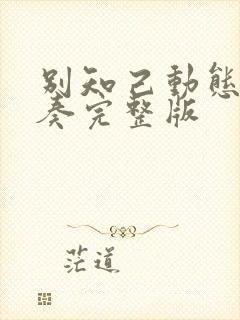 别知己動態
奏完整版
茫道